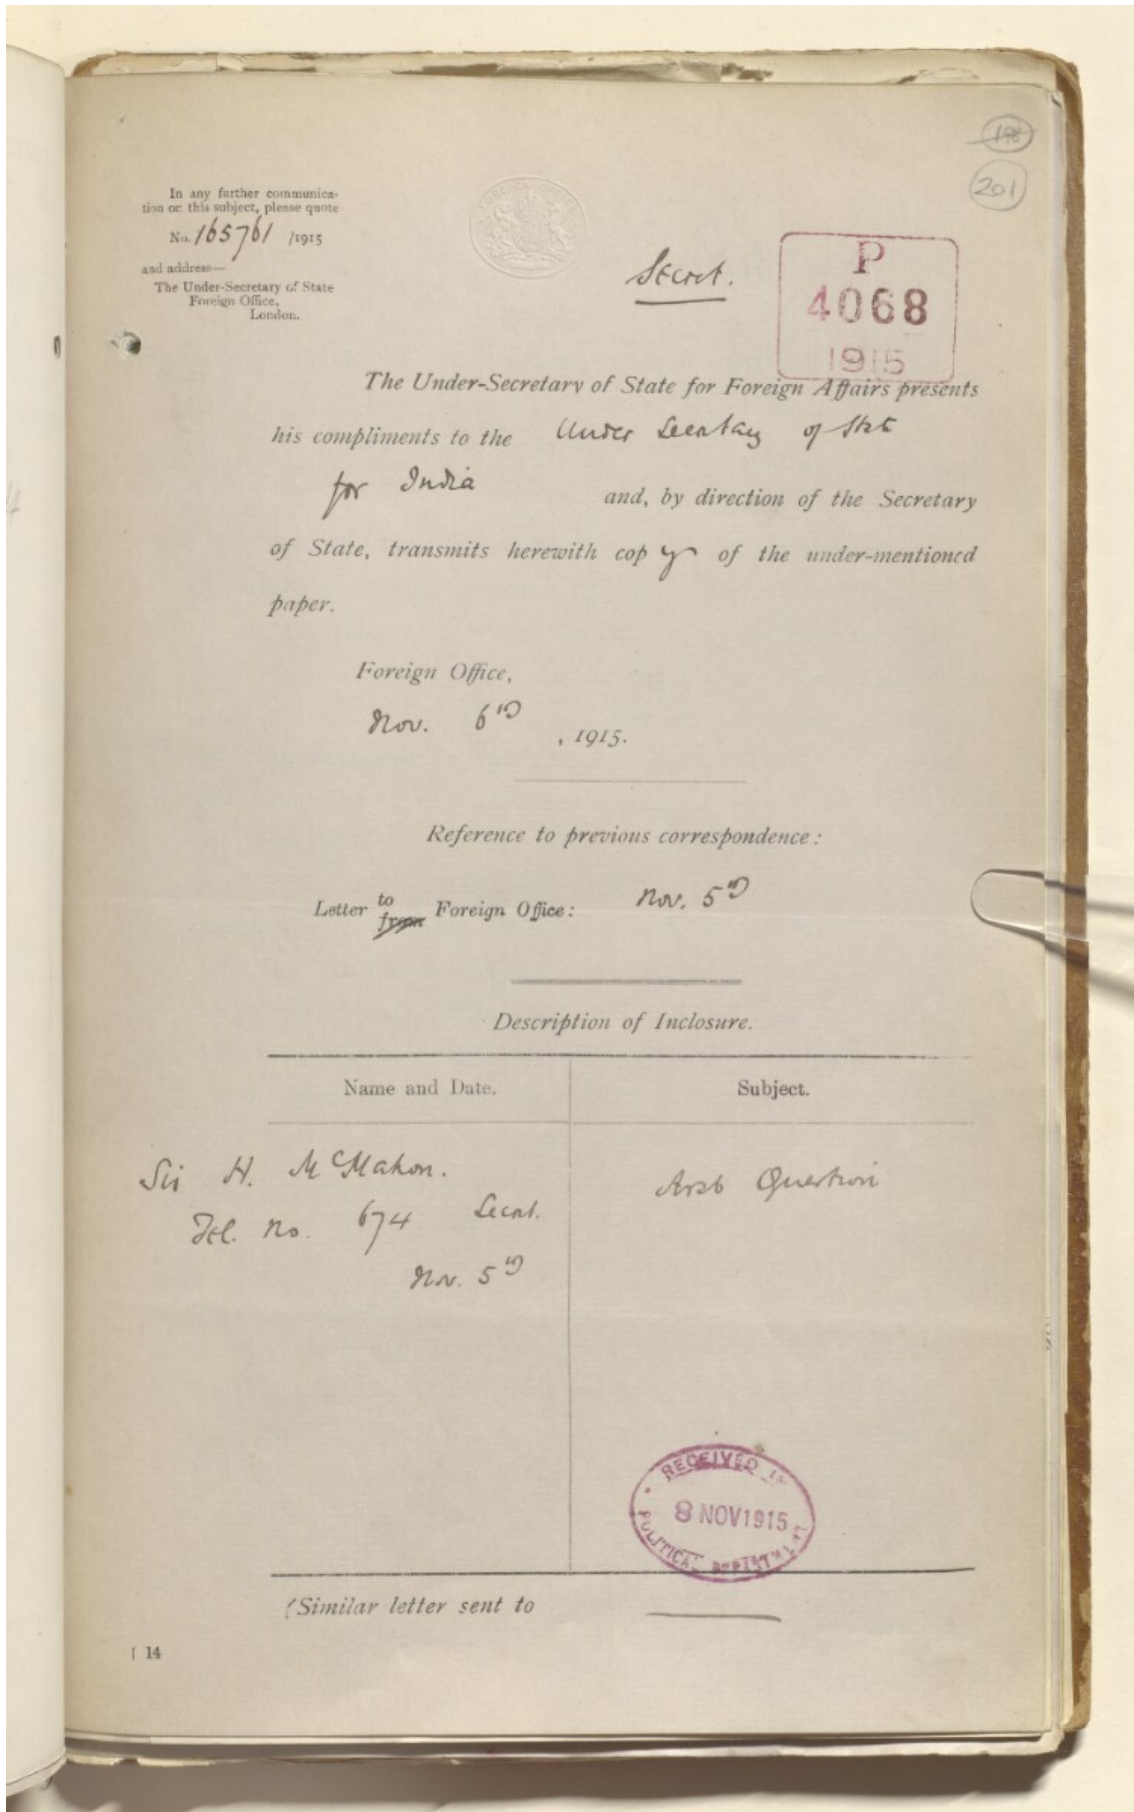 198
201
In any further communica-
tion on this subject, please quote
No. 165761 /1915
and address—
The Under-Secretary of State
Foreign Office,
London.
FOREIGN OFFICE
Secret.
P
4068
1915
The Under-Secretary of State for Foreign Affairs presents
his compliments to the Under Secretary of State
for India and, by direction of the Secretary
of State, transmits herewith copy of the under-mentioned
paper.
Foreign Office,
Nov. 6th
, 1915.
Reference to previous correspondence:
Letter to from Foreign Office: Nov. 5th
Description of Inclosure.
Name and Date. Subject.
Sir H. McMahon. Arab Question
Tel. No. 674 Secret.
Nov. 5th
RECEIVED IN
8 NOV 1915
POLITICAL DEPARTMENT
(Similar letter sent to
[ 14